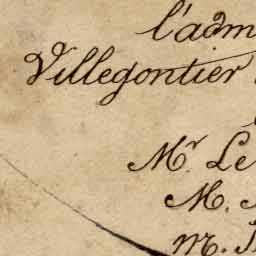 l'adm
Villegontier
Mr Le
M.
M.